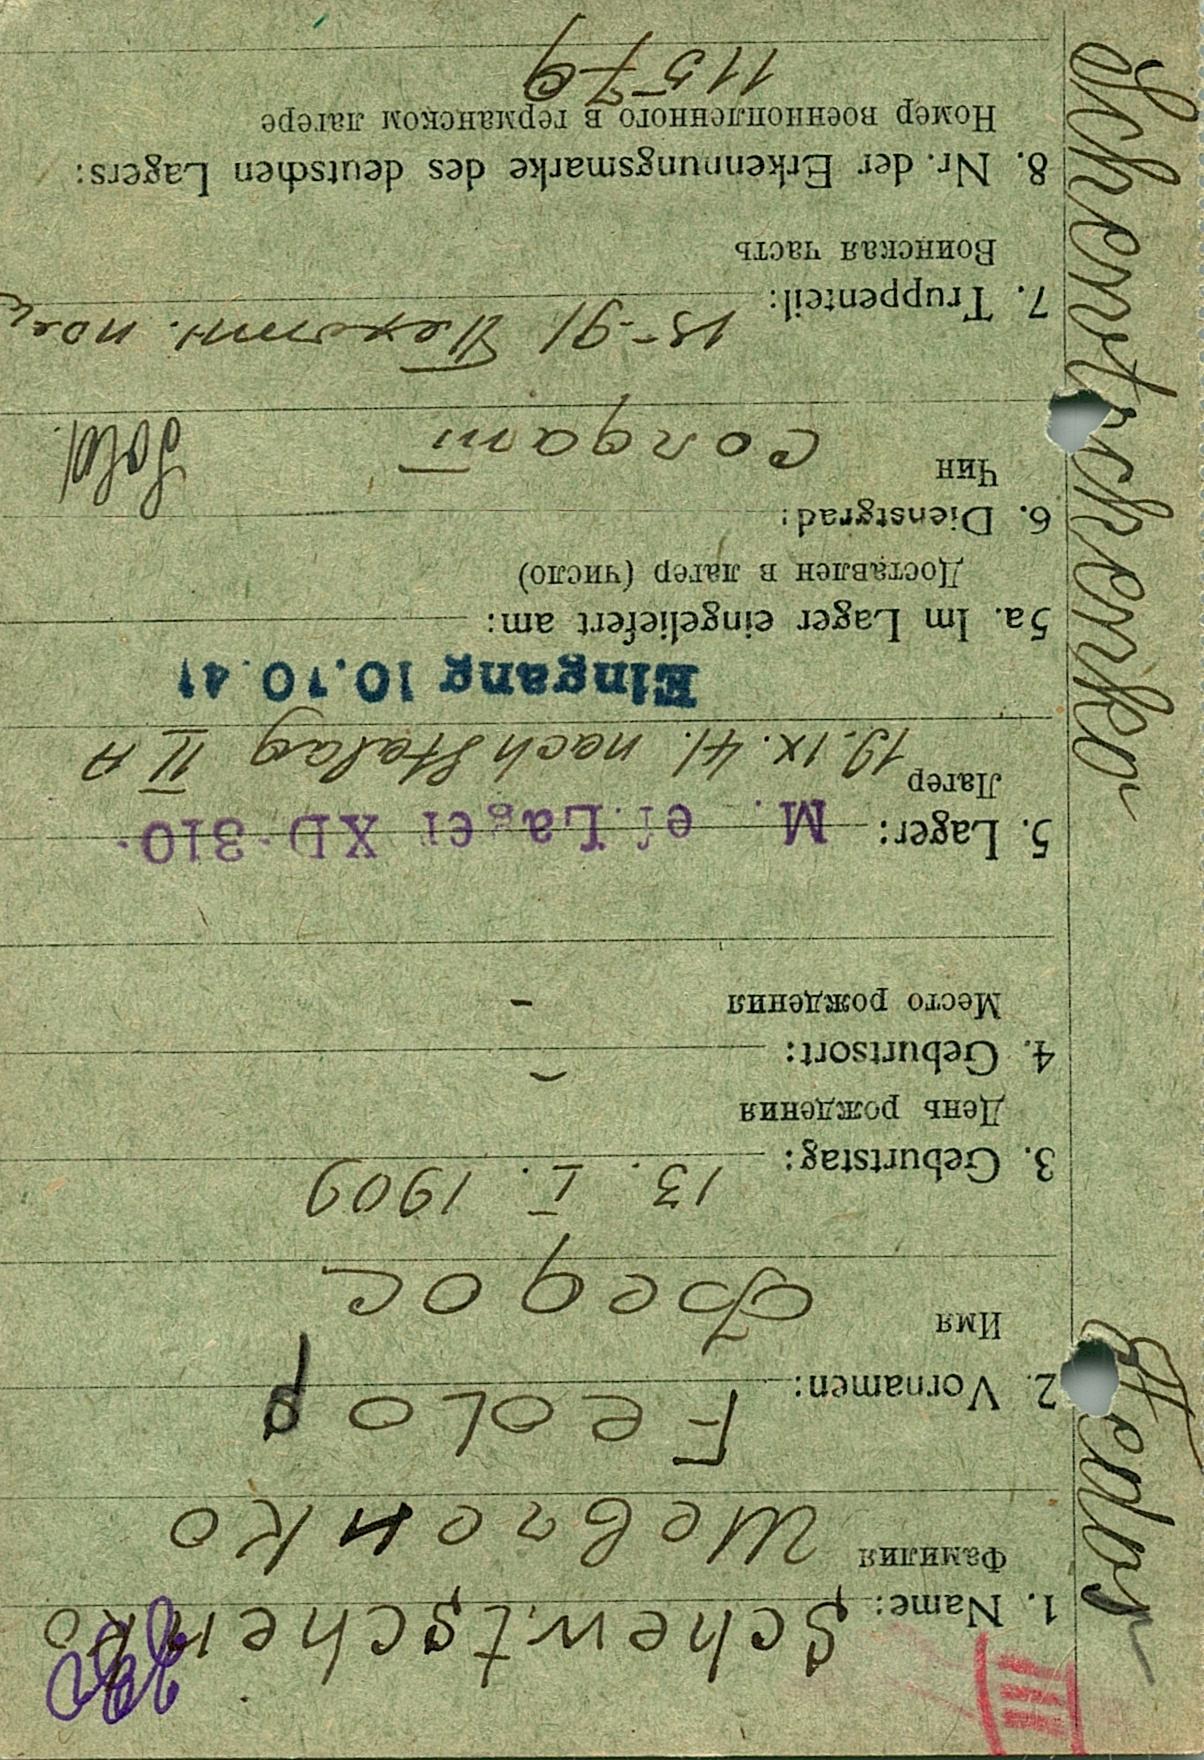 III
1. Name: Schewtschenko
Фамилия Шевченко
2. Vornamen: Feodor
Имя Федос
3. Geburtstag: 13. I. 1909
День рождения -
4. Geburtsort:
Место рождения -
5. Lager: M. ef. Lager XD-310.
Лагер 19.IX.41. nach Stalag II A
Eingang 10.10.41
5a. Im Lager eingeliefert am:
Доставлен в лагер (число)
6. Dienstgrad:
Чин солдат Sold.
7. Truppenteil: 15-91
Воинская часть
8. Nr. der Erkennungsmarke des deutschen Lagers:
Номер военнопленного в германском лагере
11579
Schewtschenko Fedor